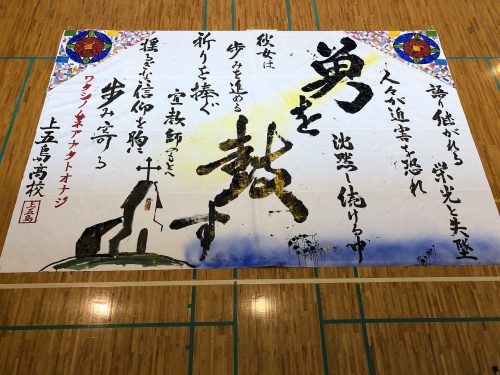 語り継がれる 栄光と失墜
人々が迫害を恐れ
沈黙し続ける中
勇を
鼓す
彼女は
歩みを進める
宣教師らへ
祈りを捧ぐ
揺るぎない信仰を胸に
歩み寄る
ワタシノムネアナタトオナジ
上五島高校
上五島